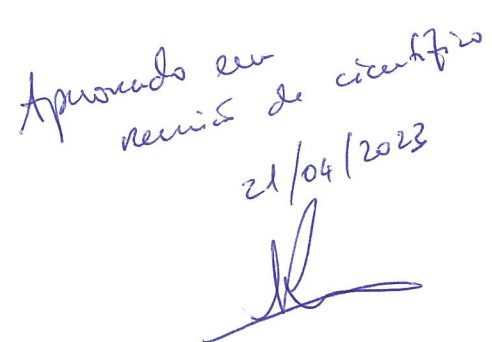 Aprovado em
reunião de científico
21/04/2023